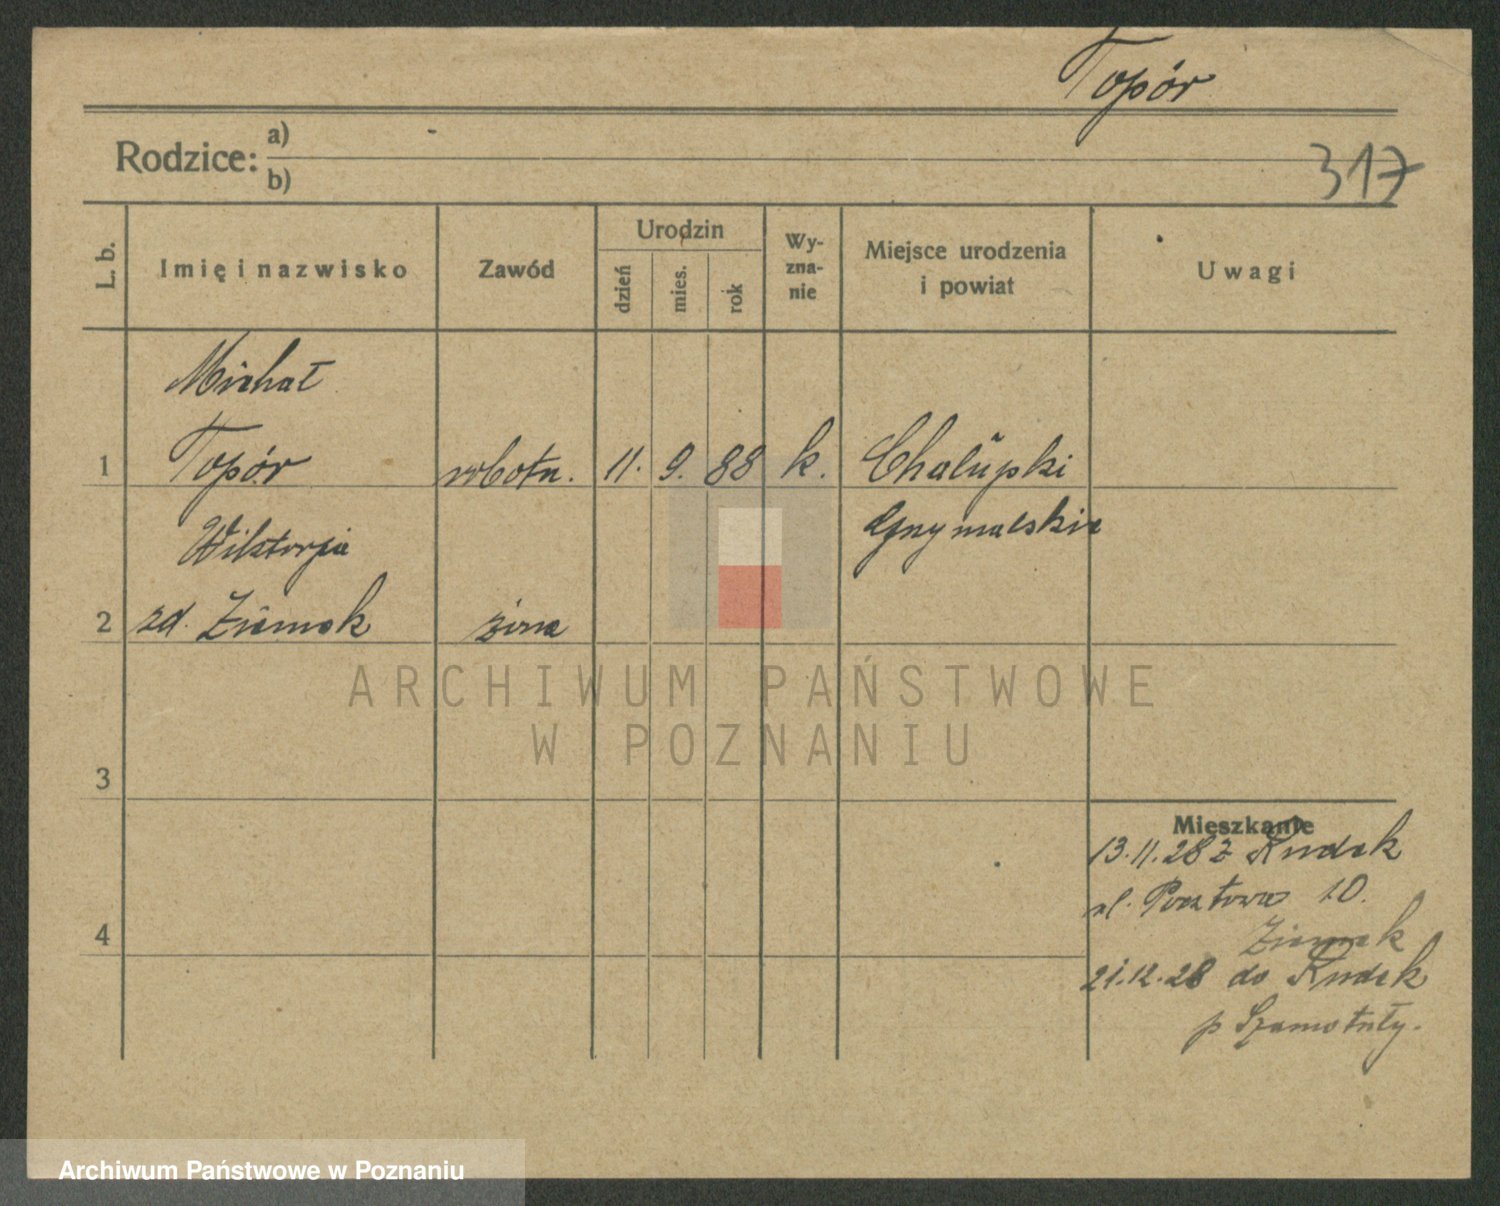 Topór
Rodzice: a)
b)
317
L. b.
Imię i nazwisko
Zawód
Urodzin
dzień
mies.
rok
Wy-
zna-
nie
Miejsce urodzenia
i powiat
Uwagi
Michał
1 Topór robotn. 11. 9. 88 k. Chalŭpki
Wiktorja
2 zd. Ziemek żona
3
4
Mieszkanie
13.11.28 z Rudek
ul. Pocztowa 10.
Ziemek
21.12.28 do Rudek
p Szamotuły.
ARCHIWUM PAŃSTWOWE
W POZNANIU
Archiwum Państwowe w Poznaniu